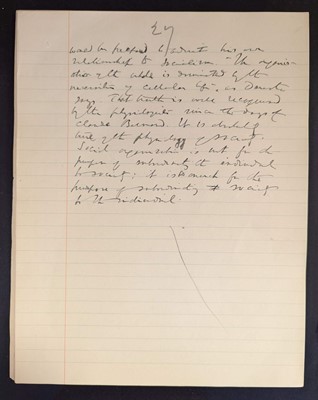 27
would be prepared to admit his own
relationship to Socialism. "The organis-
ation of the whole is dominated by the
necessities of cellular life", as Demoor
says. That truth is well recognised
by the physiologists since the days of
Claude Bernard. It is absolutely
true of the physiology of society.
Social organisation is not for the
purpose of subordinating the individual
to society; it is as much for the
purpose of subordinating the society
to the individual.